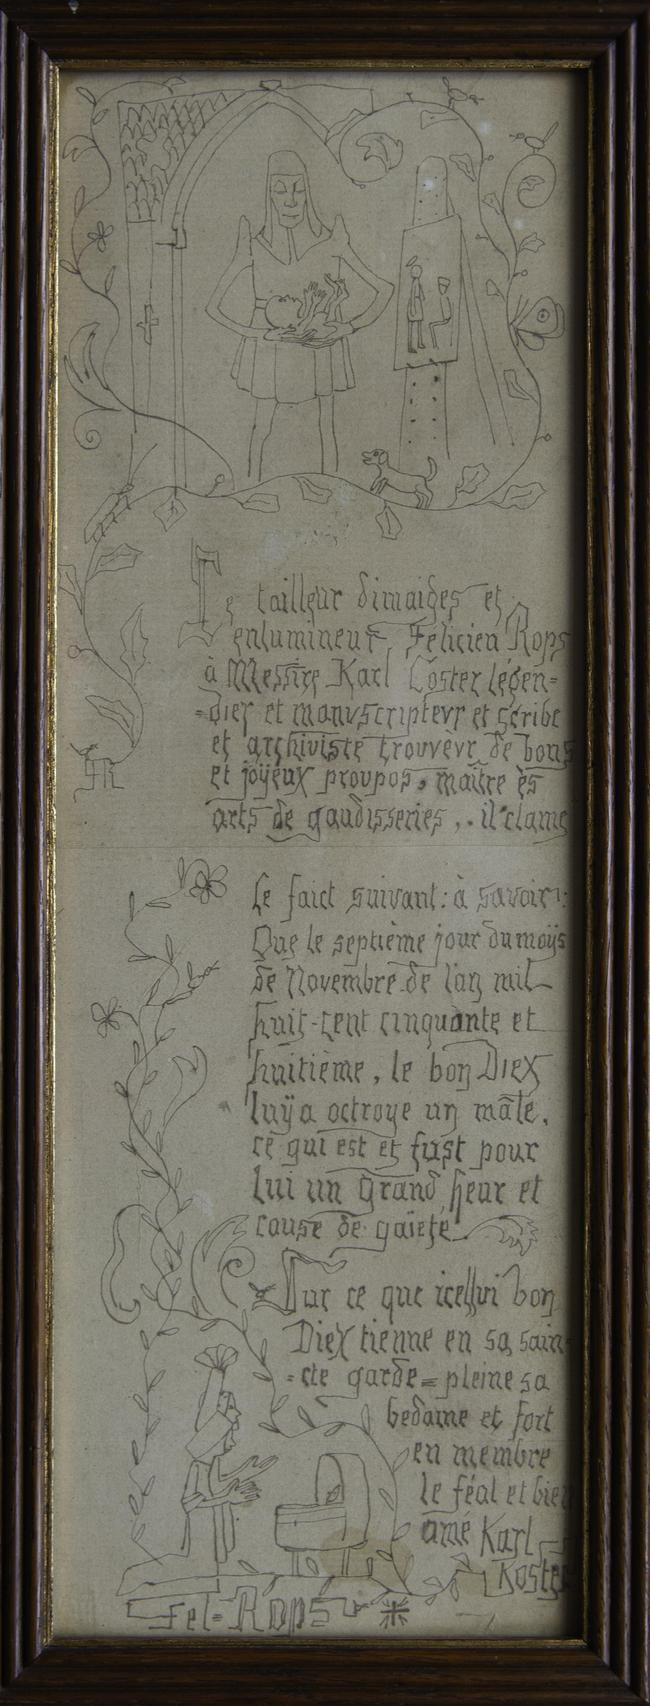 Le tailleur dimaiges et
enlumineur Félicien Rops
à Messire Karl Coster légen=
=dier et manvscriptevr et scribe
et archiviste trouvèvr de bons
et joÿeux proupos, maître ès
arts de gaudisseries, . il clame
FR
Le faict suivant : à savoir :
Que le septième jour du moÿs
de Novembre de l'an mil
huit-cent cinquante et
huitième, le bon Diex
luÿ a octroye un mâle,
ce qui est et fust pour
lui un grand heur et
cause de gaieté
Sur ce que icellvi bon
Diex tienne en sa sain=
=cte garde = pleine sa
bedaine et fort
en membre
le féal et bien
amé Karl
Koster
Fel=Rops